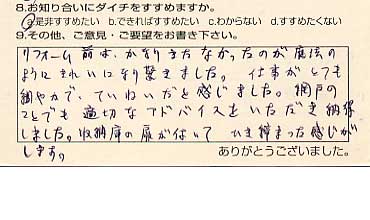 8.お知り合いにダイチをすすめますか。
a.是非すすめたい b.できればすすめたい c.わからない d.すすめたくない
9.その他、ご意見・ご要望をお書き下さい。
リフォーム前は、かなりきたなかったのが魔法の
ようにきれいになり驚きました。仕事がとても
細やかで、ていねいだと感じました。網戸の
ことでも適切なアドバイスをいただき納得
しました。収納庫の扉が付いて ひき締まった感じが
します。
ありがとうございました。